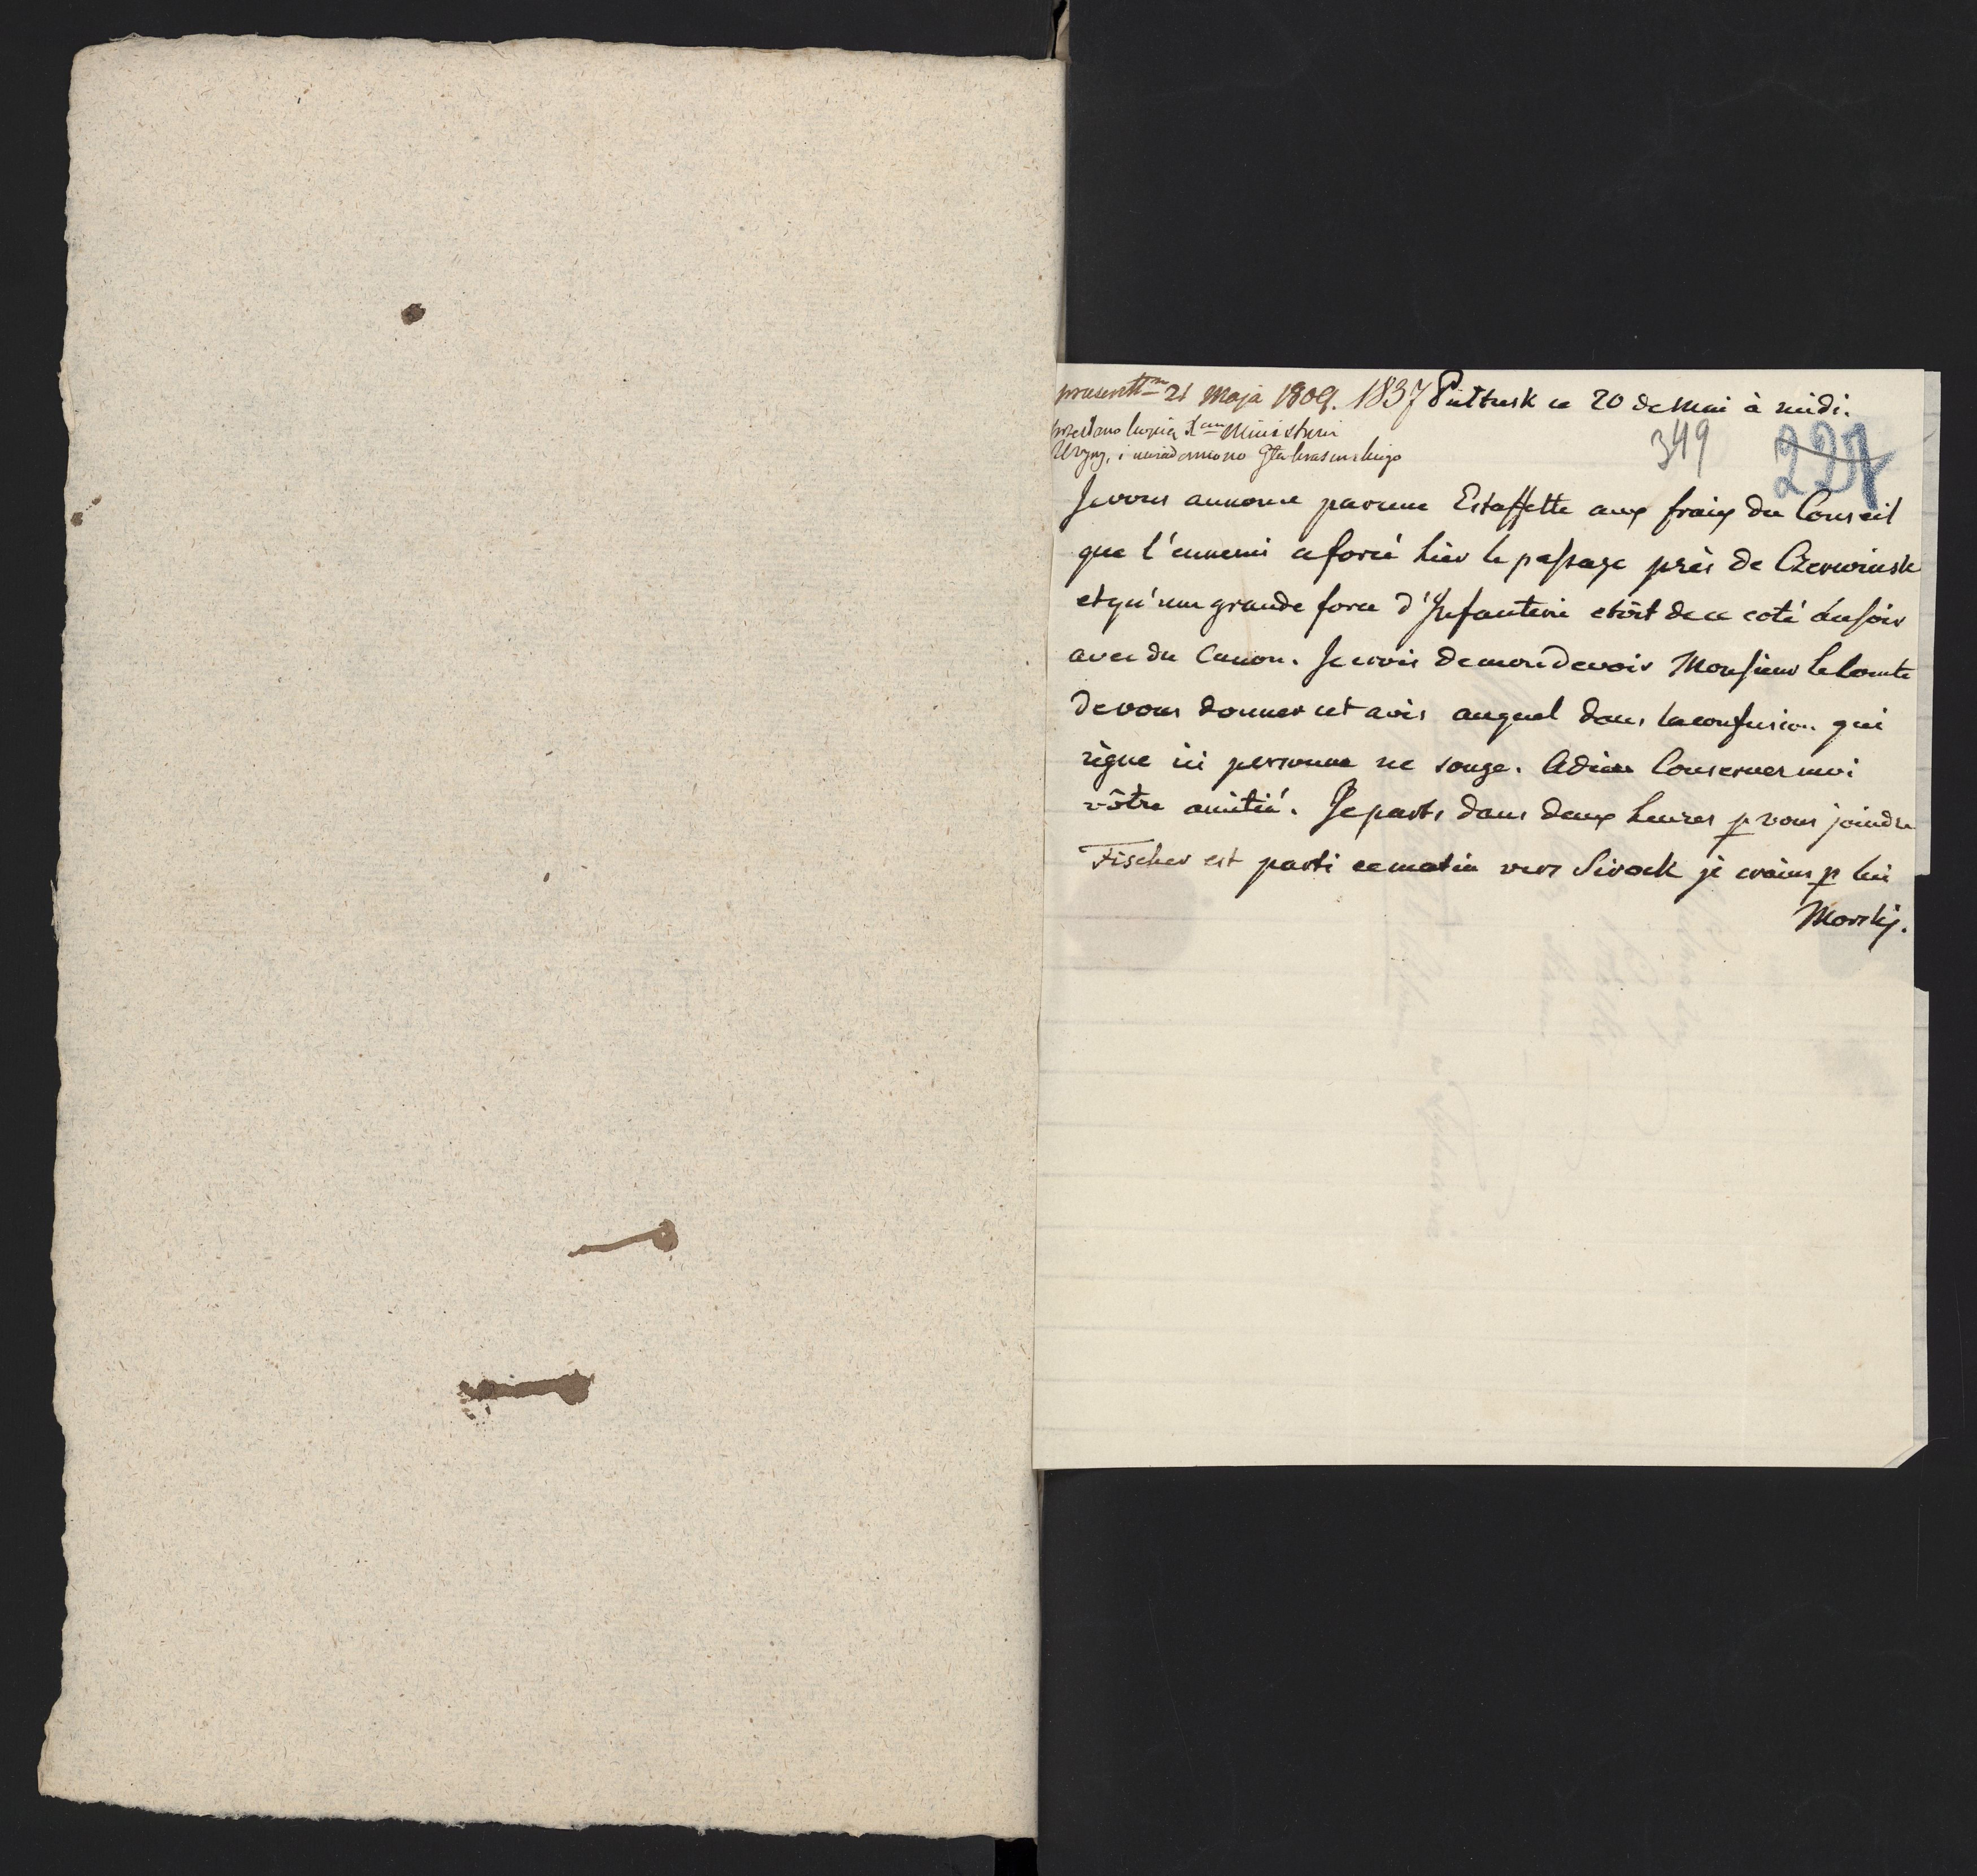 praesentt 21 Maja 1809. 1837 Pultusk ce 20 de Mai à midi.
przesłano kopią Xciu Ministrowi
Woyny, i uwiadomiono Gła Krasinskiego
349 227
Je vous annonce par une Estaffette aux fraix du Conseil
que l'ennemi a forcé hier le passage près de Czerwinsk
et qu'une grande force d'Infanterie etoit de ce coté au soir
avec du Canon. Je crois de mon devoir Monsieur le Comte
de vous donner cet avis auquel dans la confusion qui
règne ici personne ne songe. Adieu Conservez moi
vôtre amitié. Je parts dans deux heures p vous joindre
Fischer est parti ce matin vers Sirock je crains p lui
Morskj.